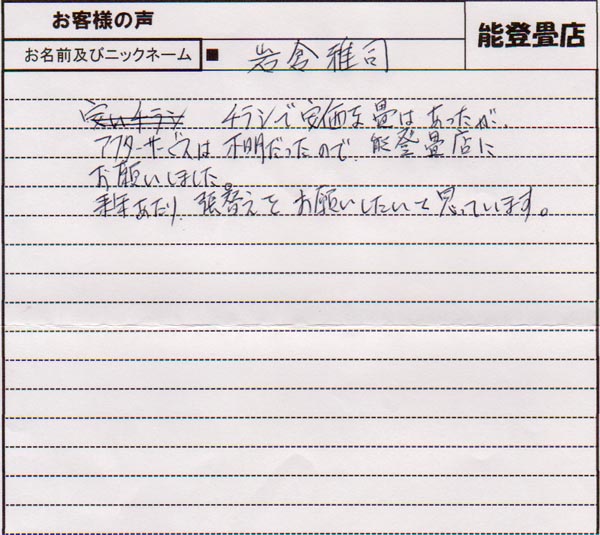 お客様の声
能登畳店
お名前及びニックネーム ■ 岩倉雅司
安いチラシ チラシで安価な畳はあったが、
アフターサービスは不明だったので、能登畳店に
お願いしました。
来年あたり張替えをお願いしたいと思っています。